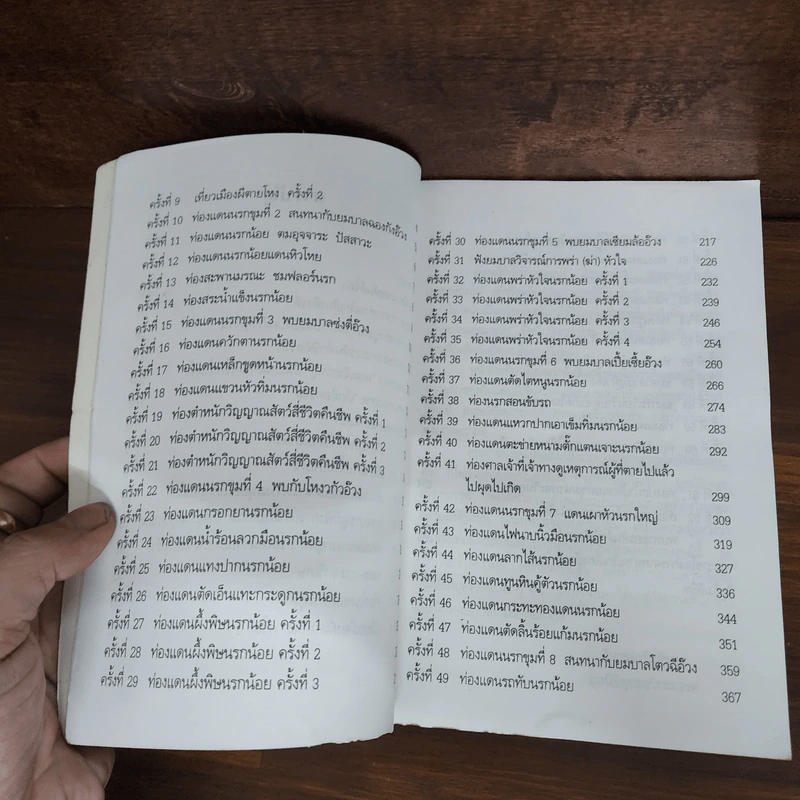 ครั้งที่ 9 เที่ยวเมืองผีตายโหง ครั้งที่ 2
ครั้งที่ 10 ท่องแดนนรกขุมที่ 2 สนทนากับยมบาลฉองกังอ๊วง
ครั้งที่ 11 ท่องแดนนรกน้อย ตมอุจจาระ ปัสสาวะ
ครั้งที่ 12 ท่องแดนนรกน้อยแดนหิวโหย
ครั้งที่ 13 ท่องสะพานมรณะ ชมฟลอร์นรก
ครั้งที่ 14 ท่องสระน้ำแข็งนรกน้อย
ครั้งที่ 15 ท่องแดนนรกขุมที่ 3 พบยมบาลซ่งตี่อ๊วง
ครั้งที่ 16 ท่องแดนควักตานรกน้อย
ครั้งที่ 17 ท่องแดนเหล็กขูดหน้านรกน้อย
ครั้งที่ 18 ท่องแดนแขวนหัวทิ่มนรกน้อย
ครั้งที่ 19 ท่องตำหนักวิญญาณสัตว์สี่ชีวิตคืนชีพ ครั้งที่ 1
ครั้งที่ 20 ท่องตำหนักวิญญาณสัตว์สี่ชีวิตคืนชีพ ครั้งที่ 2
ครั้งที่ 21 ท่องตำหนักวิญญาณสัตว์สี่ชีวิตคืนชีพ ครั้งที่ 3
ครั้งที่ 22 ท่องแดนนรกขุมที่ 4 พบกับโหงวกัวอ๊วง
ครั้งที่ 23 ท่องแดนกรอกยานรกน้อย
ครั้งที่ 24 ท่องแดนน้ำร้อนลวกมือนรกน้อย
ครั้งที่ 25 ท่องแดนแทงปากนรกน้อย
ครั้งที่ 26 ท่องแดนตัดเอ็นแทะกระดูกนรกน้อย
ครั้งที่ 27 ท่องแดนผึ้งพิษนรกน้อย ครั้งที่ 1
ครั้งที่ 28 ท่องแดนผึ้งพิษนรกน้อย ครั้งที่ 2
ครั้งที่ 29 ท่องแดนผึ้งพิษนรกน้อย ครั้งที่ 3
ครั้งที่ 30 ท่องแดนนรกขุมที่ 5 พบยมบาลเซียมล้ออ๊วง 217
ครั้งที่ 31 ฟังยมบาลวิจารณ์การพร่า (ฆ่า) หัวใจ 226
ครั้งที่ 32 ท่องแดนพร่าหัวใจนรกน้อย ครั้งที่ 1 232
ครั้งที่ 33 ท่องแดนพร่าหัวใจนรกน้อย ครั้งที่ 2 239
ครั้งที่ 34 ท่องแดนพร่าหัวใจนรกน้อย ครั้งที่ 3 246
ครั้งที่ 35 ท่องแดนพร่าหัวใจนรกน้อย ครั้งที่ 4 254
ครั้งที่ 36 ท่องแดนนรกขุมที่ 6 พบยมบาลเปี้ยเซี้ยอ๊วง 260
ครั้งที่ 37 ท่องแดนตัดไตหนูนรกน้อย 266
ครั้งที่ 38 ท่องนรกสอนขับรถ 274
ครั้งที่ 39 ท่องแดนแหวกปากเอาเข็มทิ่มนรกน้อย 283
ครั้งที่ 40 ท่องแดนตะข่ายหนามตั๊กแตนเจาะนรกน้อย 292
ครั้งที่ 41 ท่องศาลเจ้าที่เจ้าทางดูเหตุการณ์ผู้ที่ตายไปแล้ว
ไปผุดไปเกิด 299
ครั้งที่ 42 ท่องแดนนรกขุมที่ 7 แดนเผาหัวนรกใหญ่ 309
ครั้งที่ 43 ท่องแดนไฟนาบนิ้วมือนรกน้อย 319
ครั้งที่ 44 ท่องแดนลากไส้นรกน้อย 327
ครั้งที่ 45 ท่องแดนทูนหินคู้ตัวนรกน้อย 336
ครั้งที่ 46 ท่องแดนกระทะทองแดนนรกน้อย 344
ครั้งที่ 47 ท่องแดนตัดลิ้นร้อยแก้มนรกน้อย 351
ครั้งที่ 48 ท่องแดนนรกขุมที่ 8 สนทนากับยมบาลโตวฉีอ๊วง 359
ครั้งที่ 49 ท่องแดนรถทับนรกน้อย 367